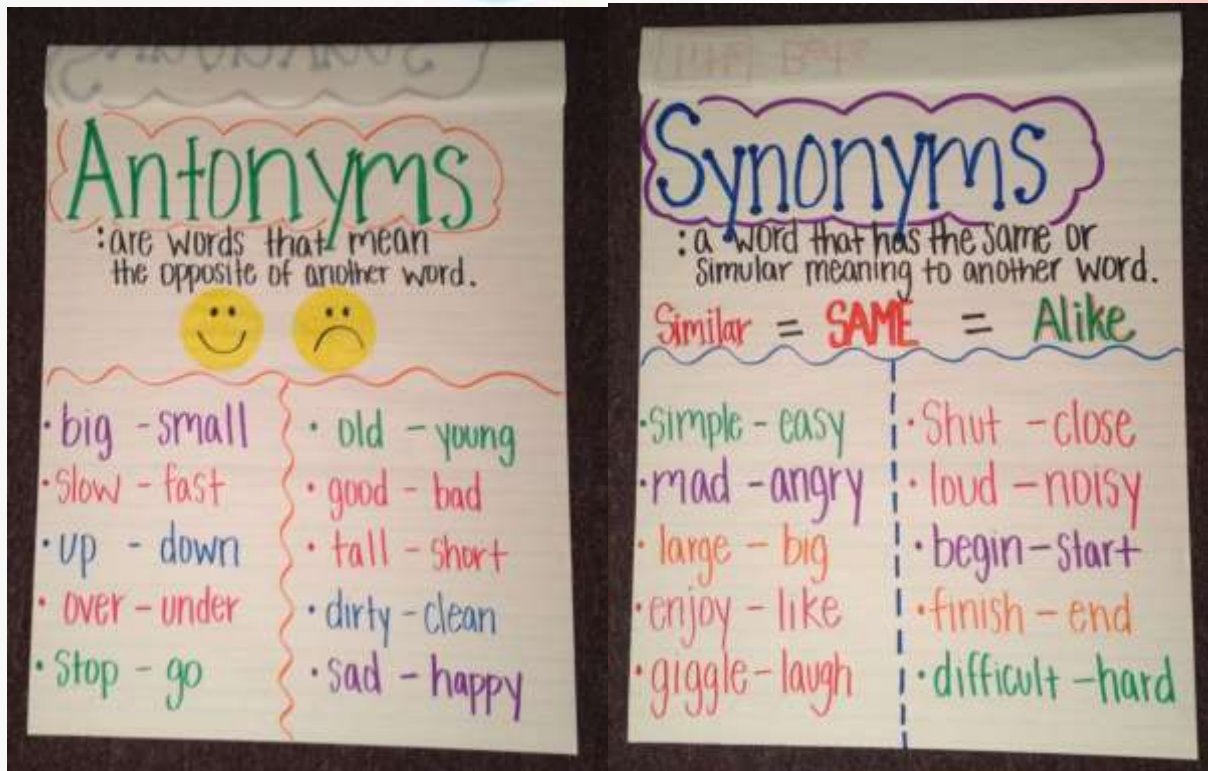 Antonyms
: are words that mean
the opposite of another word.
• big - small
• slow - fast
• up - down
• over - under
• Stop - go
• old - young
• good - bad
• tall - short
• dirty - clean
• sad - happy
Synonyms
: a word that has the same or
simular meaning to another word.
Similar = SAME = Alike
• simple - easy
• mad - angry
• large - big
• enjoy - like
• giggle - laugh
• Shut - close
• loud - noisy
• begin - start
• finish - end
• difficult - hard